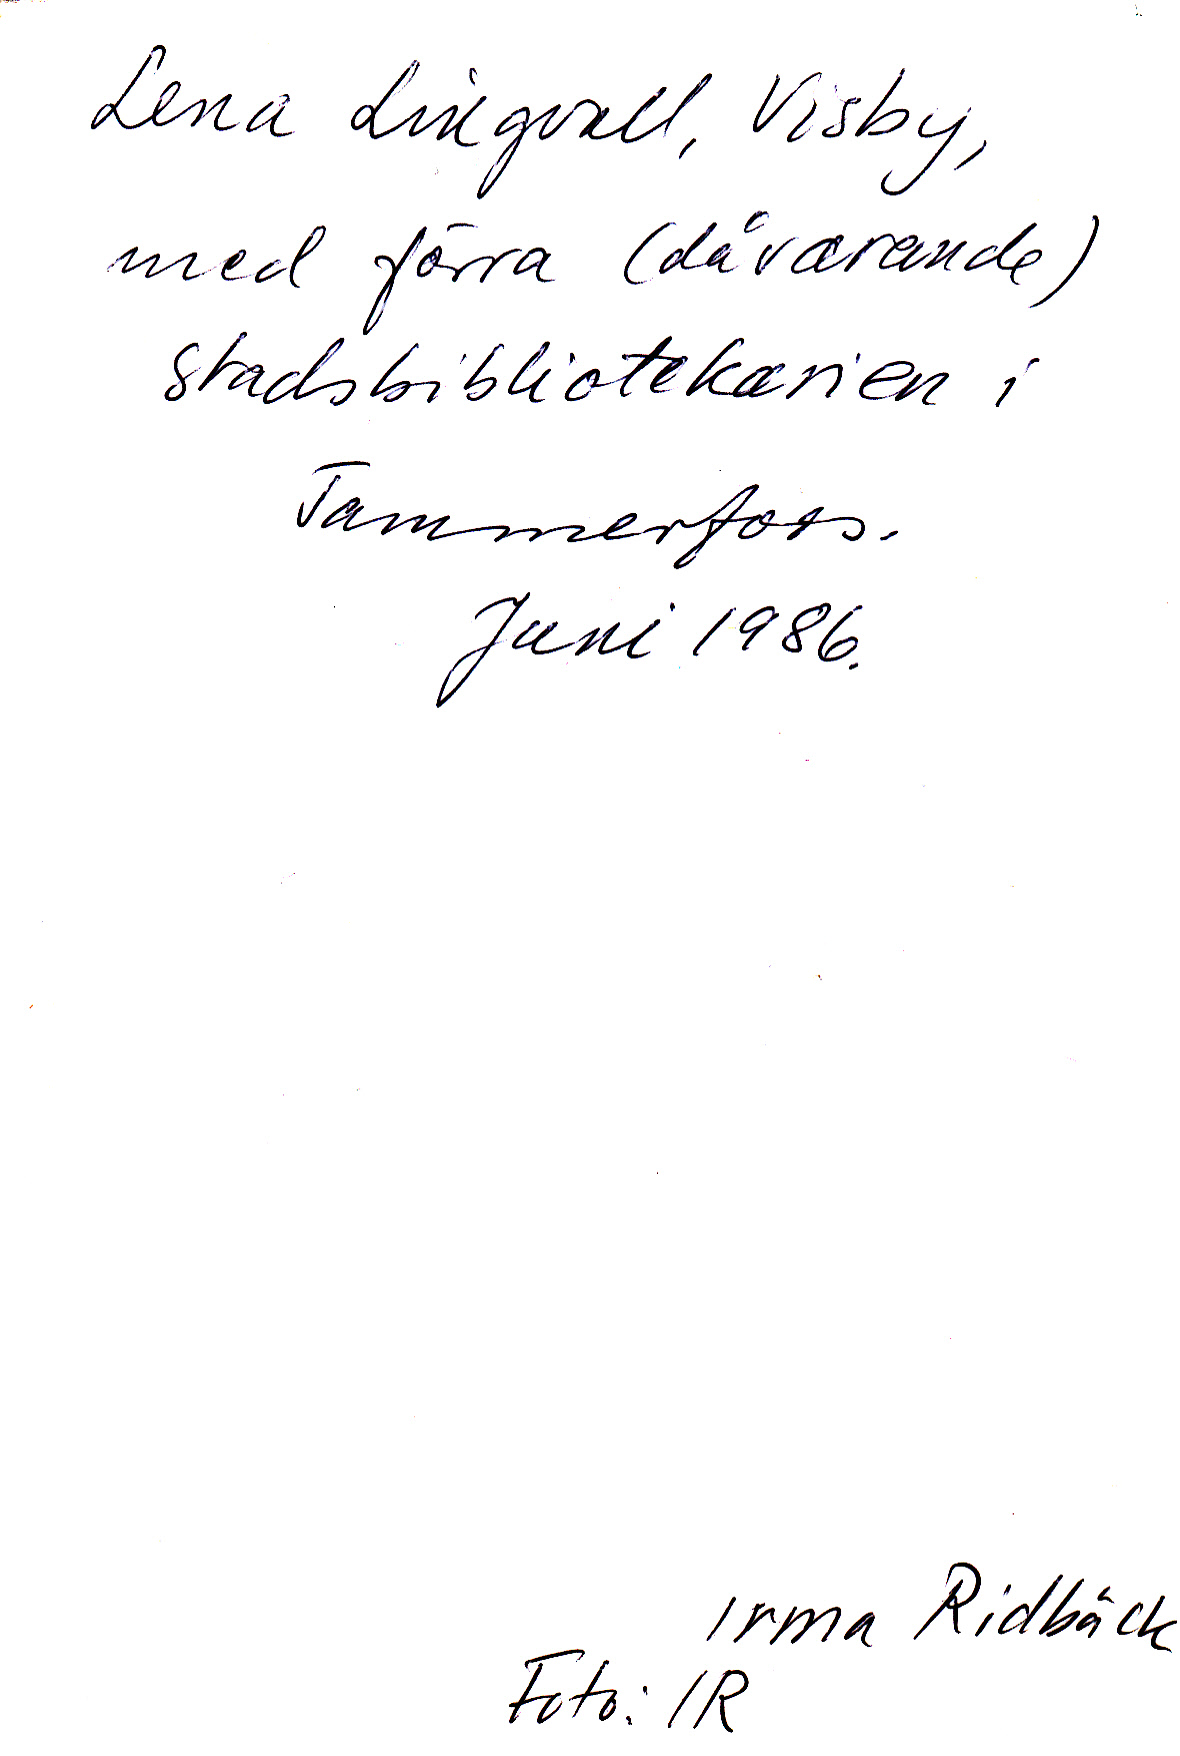 Lena Lingvall, Visby,
med förra (dåvarande)
stadsbibliotekarien i
Tammerfors.
Juni 1986.
Irma Ridbäck
Foto: IR